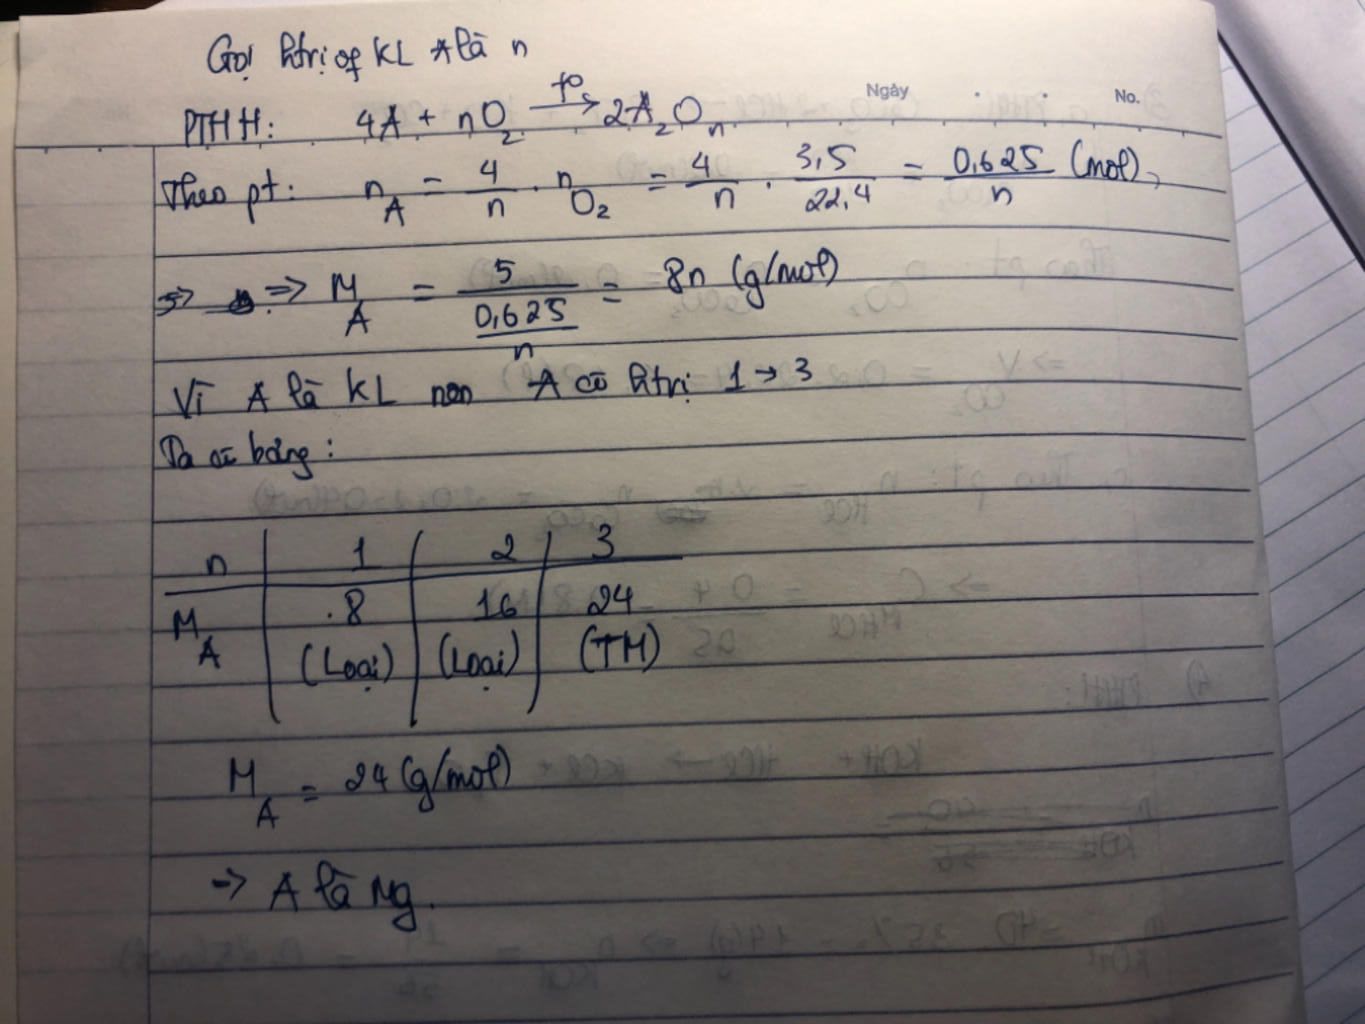 Gọi htrị of KL A là n
Ngày No.
PTHH: 4A + nO₂ –t°→ 2A₂Oₙ
Theo pt: n_A = 4/n . n_O₂ = 4/n . 3,5/22,4 = 0,625/n (mol)
=> => M_A = 5/(0,625/n) = 8n (g/mol)
Vì A là KL nen A có htrị 1 → 3
Ta có bảng:
n | 1 | 2 | 3
M_A | 8 | 16 | 24
(Loại) | (Loại) | (TM)
M_A = 24 (g/mol)
-> A là Mg.